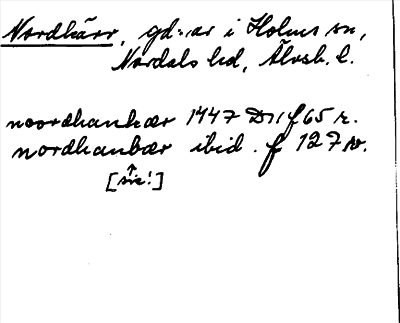 Nordkärr, gd:ar i Holms sn,
Nordals hd, Älvsb. l.
noordhankær 1447 D11 f 65 r.
nordhanbær ibid. f 127 v.
[sic!]